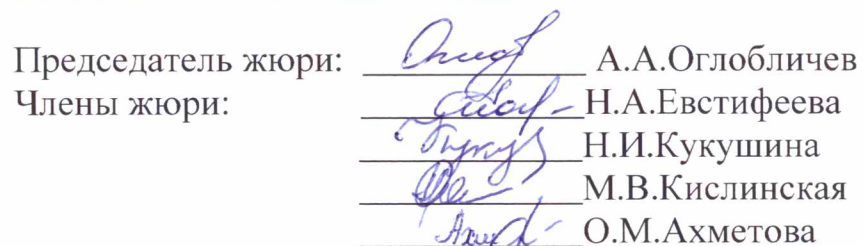 Председатель жюри: А.А.Оглобличев
Члены жюри: Н.А.Евстифеева
Н.И.Кукушина
М.В.Кислинская
О.М.Ахметова